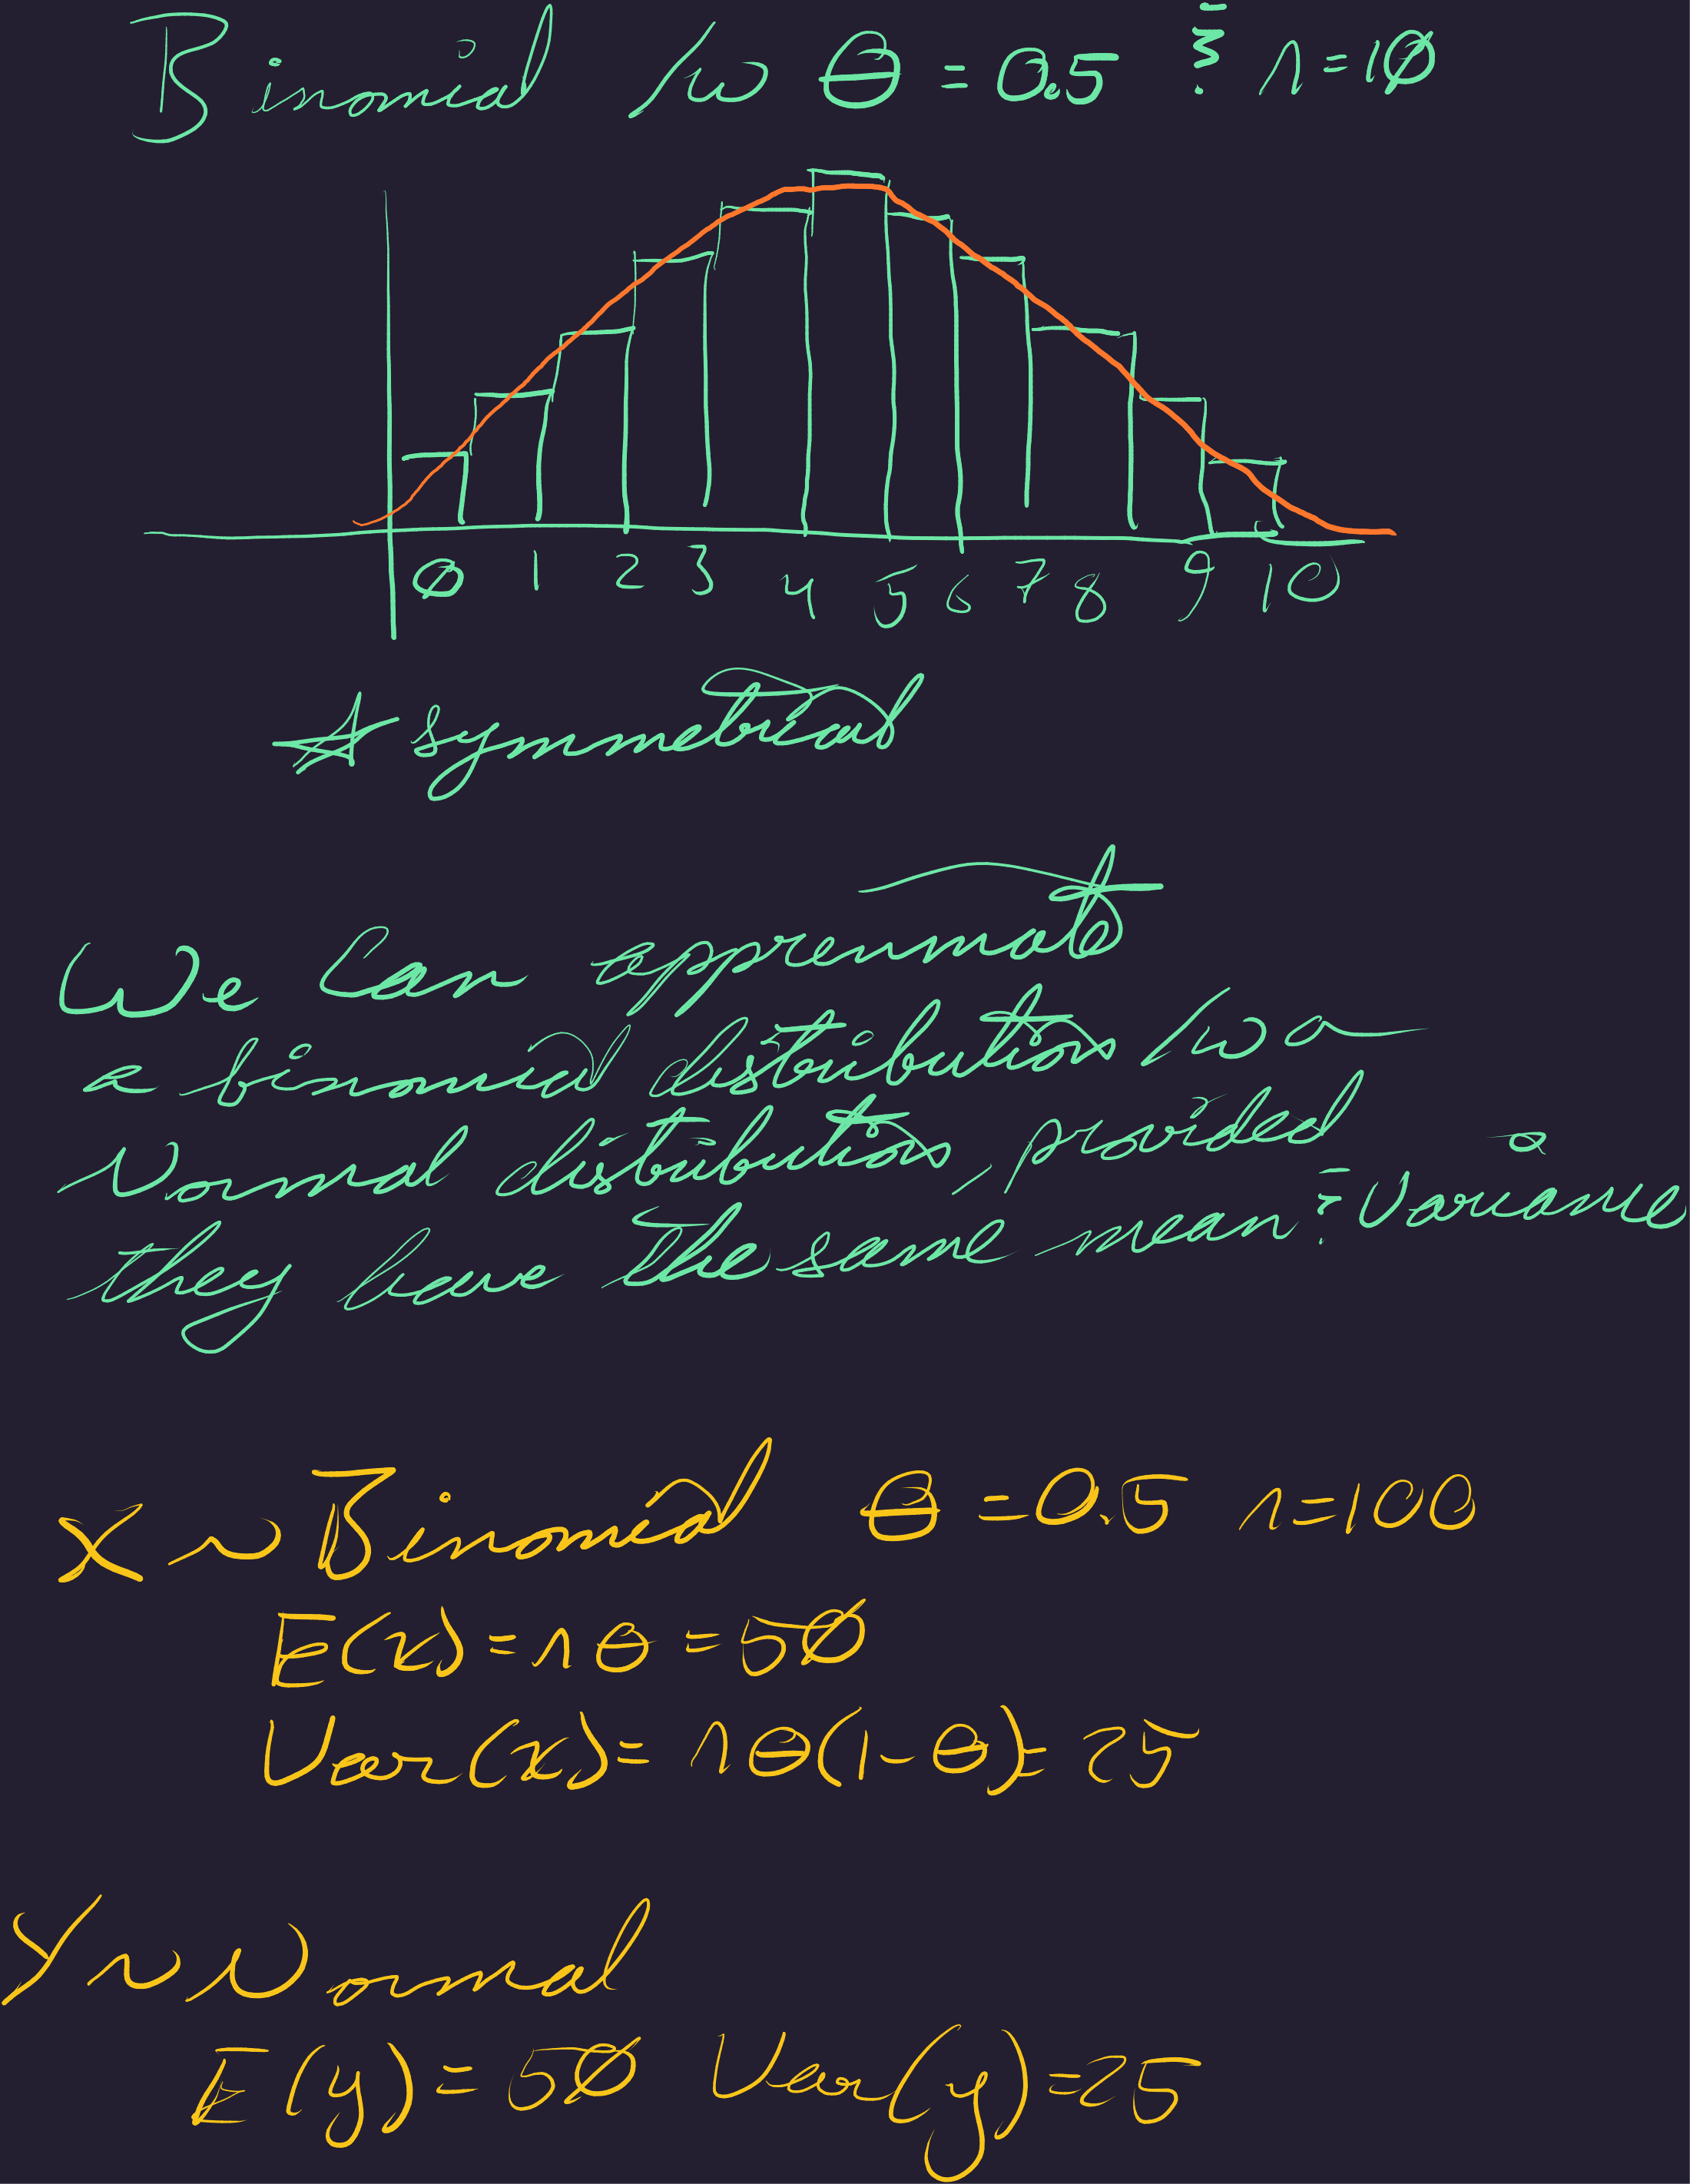 Binomial w θ = 0.5 & n = 10
0 1 2 3 4 5 6 7 8 9 10
* symmetrical
We can approximate
a binomial distribution w a
Normal distribution, provided
they have the same mean & Variance
X ~ Binomial θ = 0.5 n = 100
E(x) = nθ = 50
Var(x) = nθ(1-θ) = 25
Y ~ Normal
E(y) = 50 Var(y) = 25